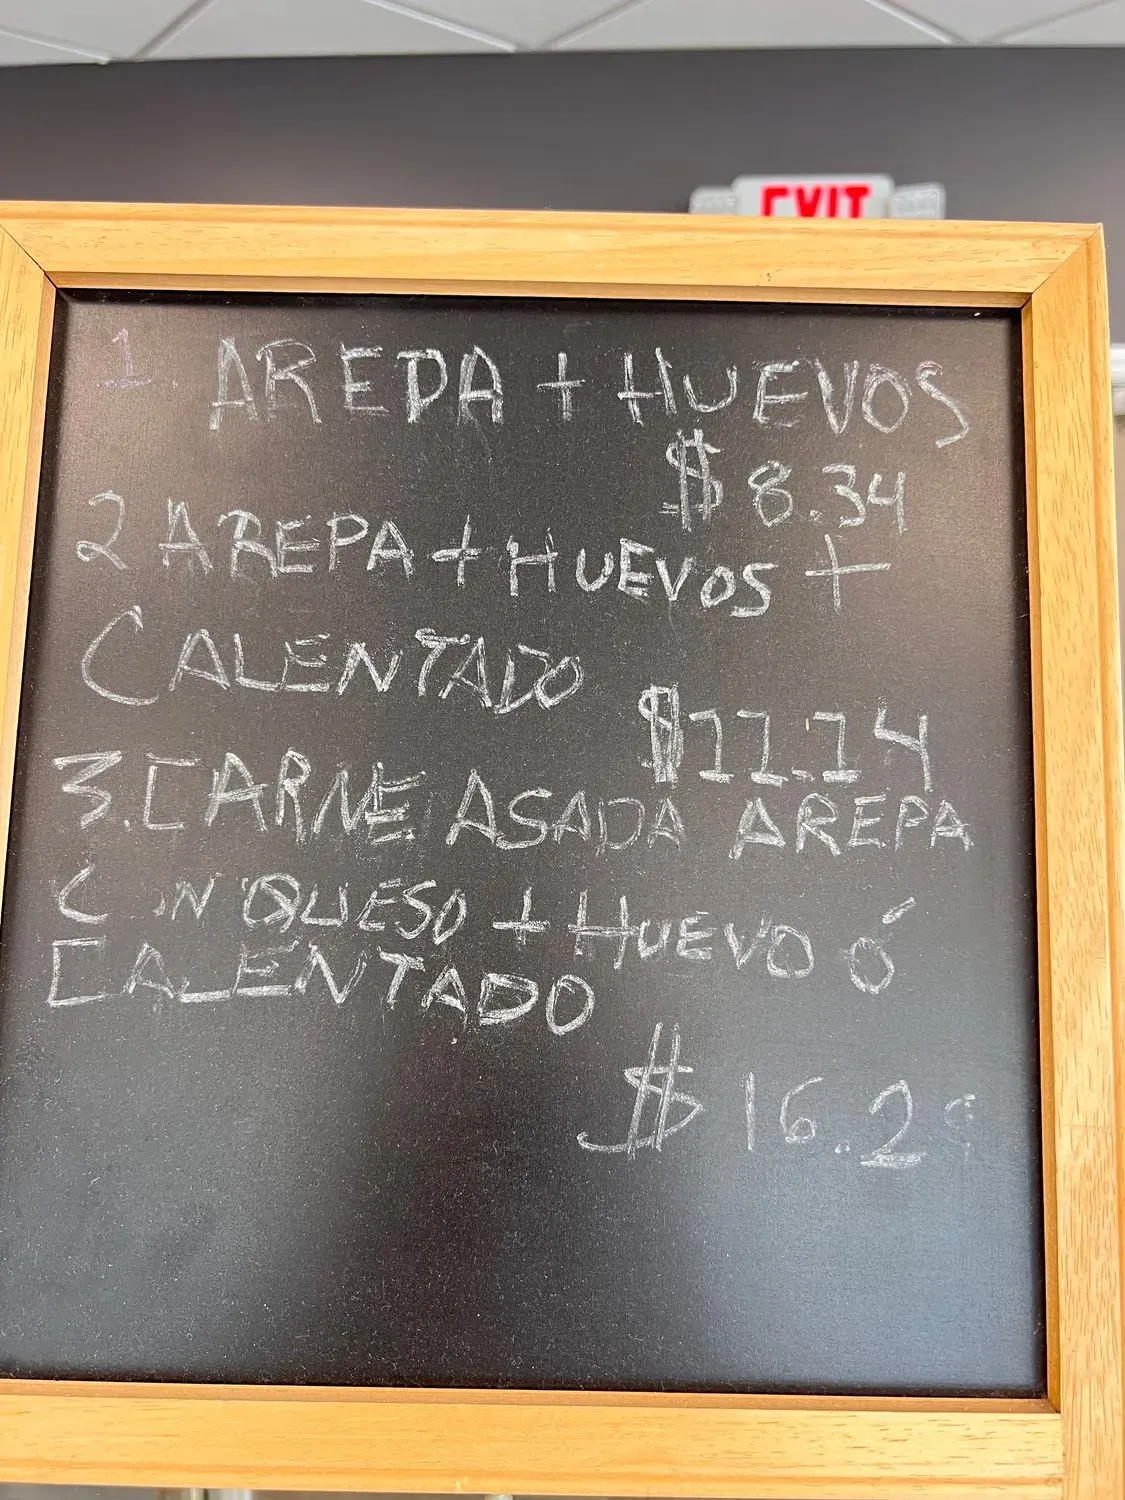 EXIT
1. AREPA + HUEVOS
$ 8.34
2 AREPA + HUEVOS +
CALENTADO
$11.14
3. CARNE ASADA AREPA
CON QUESO + HUEVO Ó
CALENTADO